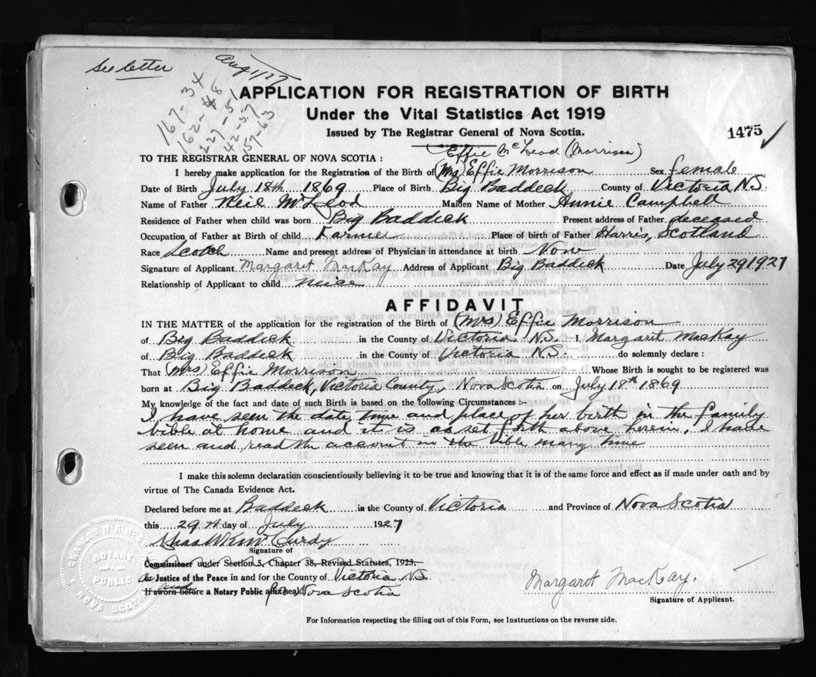 See letter
Aug 1/27
167-34
162-48
227-51
42-57
157-63
APPLICATION FOR REGISTRATION OF BIRTH
Under the Vital Statistics Act 1919
Issued by The Registrar General of Nova Scotia.
1475 ✓
Effie McLeod (Morrison)
TO THE REGISTRAR GENERAL OF NOVA SCOTIA:
I hereby make application for the Registration of the Birth of (Mrs) Effie Morrison Sex female
Date of Birth July 18th 1869 Place of Birth Big Baddeck County of Victoria N.S.
Name of Father Neil McLeod Maiden Name of Mother Annie Campbell
Residence of Father when child was born Big Baddeck Present address of Father deceased
Occupation of Father at Birth of child Farmer Place of birth of Father Harris, Scotland
Race Scotch Name and present address of Physician in attendance at birth None
Signature of Applicant Margaret MacKay Address of Applicant Big Baddeck Date July 29 1927
Relationship of Applicant to child niece
AFFIDAVIT
IN THE MATTER of the application for the registration of the Birth of (Mrs) Effie Morrison
of Big Baddeck in the County of Victoria N.S. I, Margaret MacKay
of Big Baddeck in the County of Victoria N.S. do solemnly declare:
That (Mrs) Effie Morrison Whose Birth is sought to be registered was
born at Big Baddeck, Victoria County, Nova Scotia on July 18th 1869
My knowledge of the fact and date of such Birth is based on the following Circumstances:-
I have seen the date, time and place of her birth in the family
bible at home and it is as set forth above herein. I have
seen and read the account in the bible many time
I make this solemn declaration conscientiously believing it to be true and knowing that it is of the same force and effect as if made under oath and by
virtue of The Canada Evidence Act.
Declared before me at Baddeck in the County of Victoria and Province of Nova Scotia
this 29th day of July 1927
Signature of
Commissioner under Section 5, Chapter 38, Revised Statutes, 1923,
Justice of the Peace in and for the County of Victoria N.S.
If sworn before a Notary Public affix seal. for Nova Scotia
NOTARY PUBLIC
NOVA SCOTIA
Margaret MacKay.
Signature of Applicant.
For Information respecting the filling out of this Form, see Instructions on the reverse side.